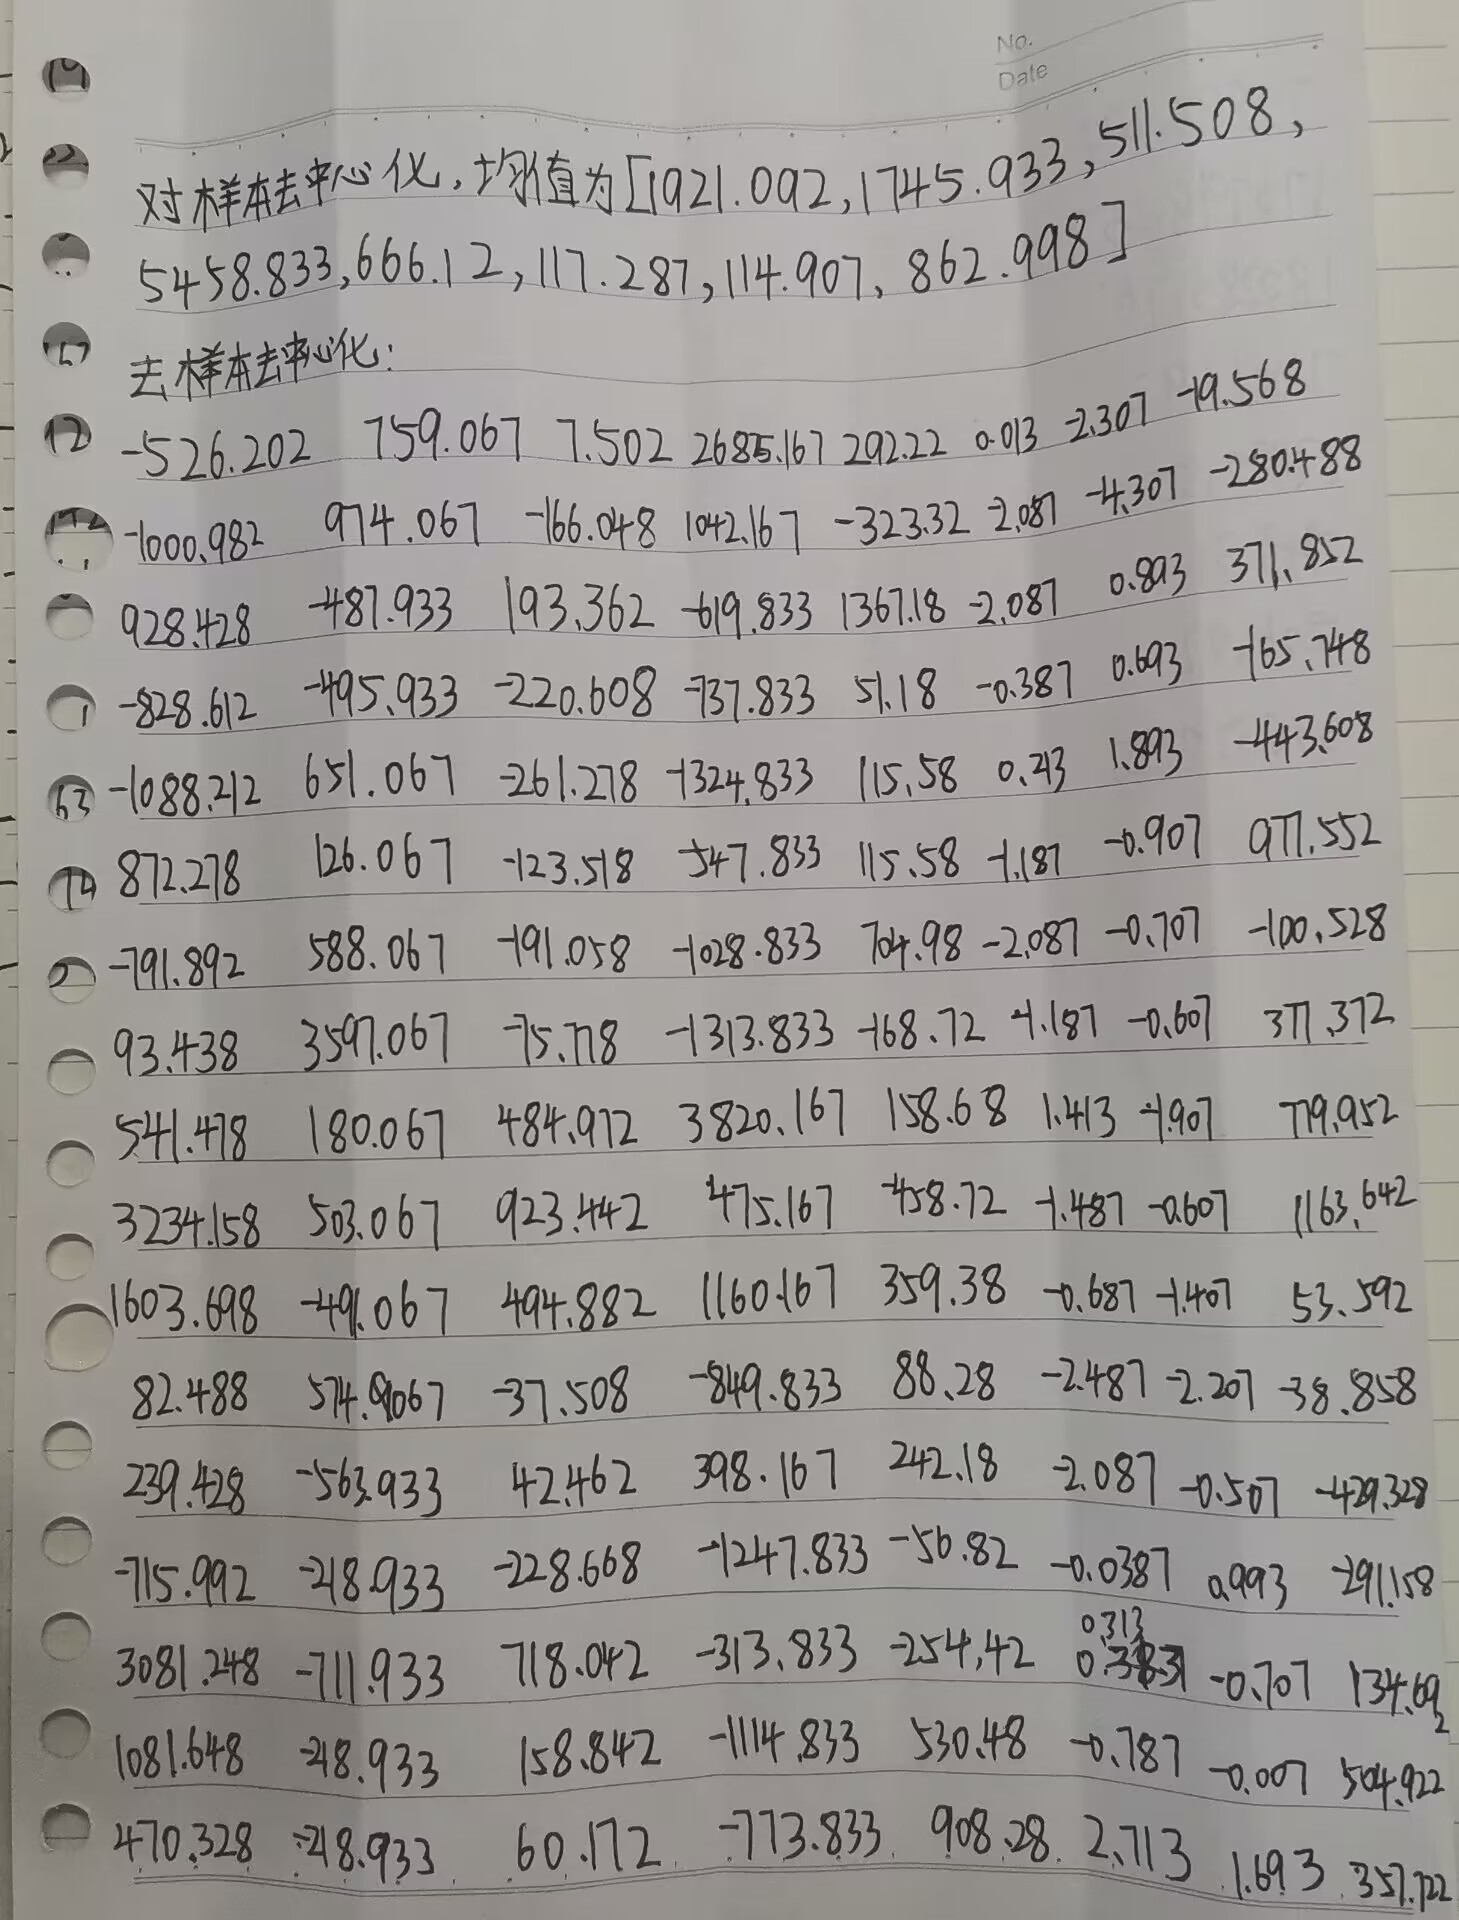 No.
Date
对样本去中心化，均值为[1921.092,1745.933,511.508,
5458.833,666.12,117.287,114.907,862.998]
去样本去中心化:
-526.202 759.067 7.502 2685.167 292.22 0.013 -2.307 -19.568
-1000.982 974.067 -166.048 1042.167 -323.32 -2.087 -4.307 -280.488
928.428 -487.933 193.362 -619.833 1367.18 -2.087 0.893 371.852
-828.612 -495.933 -220.608 -737.833 51.18 -0.387 0.693 -165.748
-1088.212 651.067 -261.278 -1324.833 115.58 0.213 1.893 -443.608
872.278 126.067 -123.518 -547.833 115.58 -1.187 -0.907 977.552
-791.892 588.067 -191.058 -1028.833 704.98 -2.087 -0.707 -100.528
93.438 3597.067 -75.778 -1313.833 -168.72 -1.187 -0.607 377.372
541.478 180.067 484.972 3820.167 158.68 1.413 -1.907 779.952
3234.158 503.067 923.442 475.167 -458.72 -1.487 -0.607 1163.642
1603.698 -491.067 494.882 1160.167 359.38 -0.687 -1.407 53.592
82.488 574.067 -37.508 -849.833 88.28 -2.487 -2.207 -38.858
239.428 -563.933 42.462 398.167 242.18 -2.087 -0.507 -429.328
-715.992 -218.933 -228.668 -1247.833 -56.82 -0.0387 0.993 -291.158
3081.248 -711.933 718.042 -313.833 -254.42 0.313 -0.707 134.692
1081.648 -218.933 158.842 -1114.833 530.48 -0.787 -0.007 504.922
470.328 -218.933 60.172 -773.833 908.28 2.713 1.693 357.722